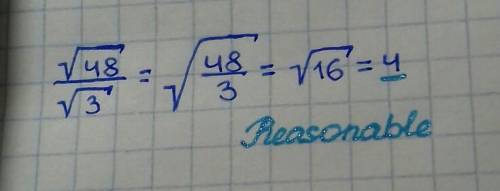 √48/√3 = √(48/3) = √16 = 4
Reasonable